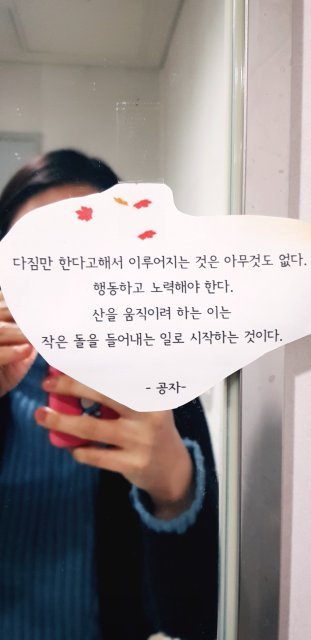 다짐만 한다고해서 이루어지는 것은 아무것도 없다.
행동하고 노력해야 한다.
산을 움직이려 하는 이는
작은 돌을 들어내는 일로 시작하는 것이다.
- 공자-